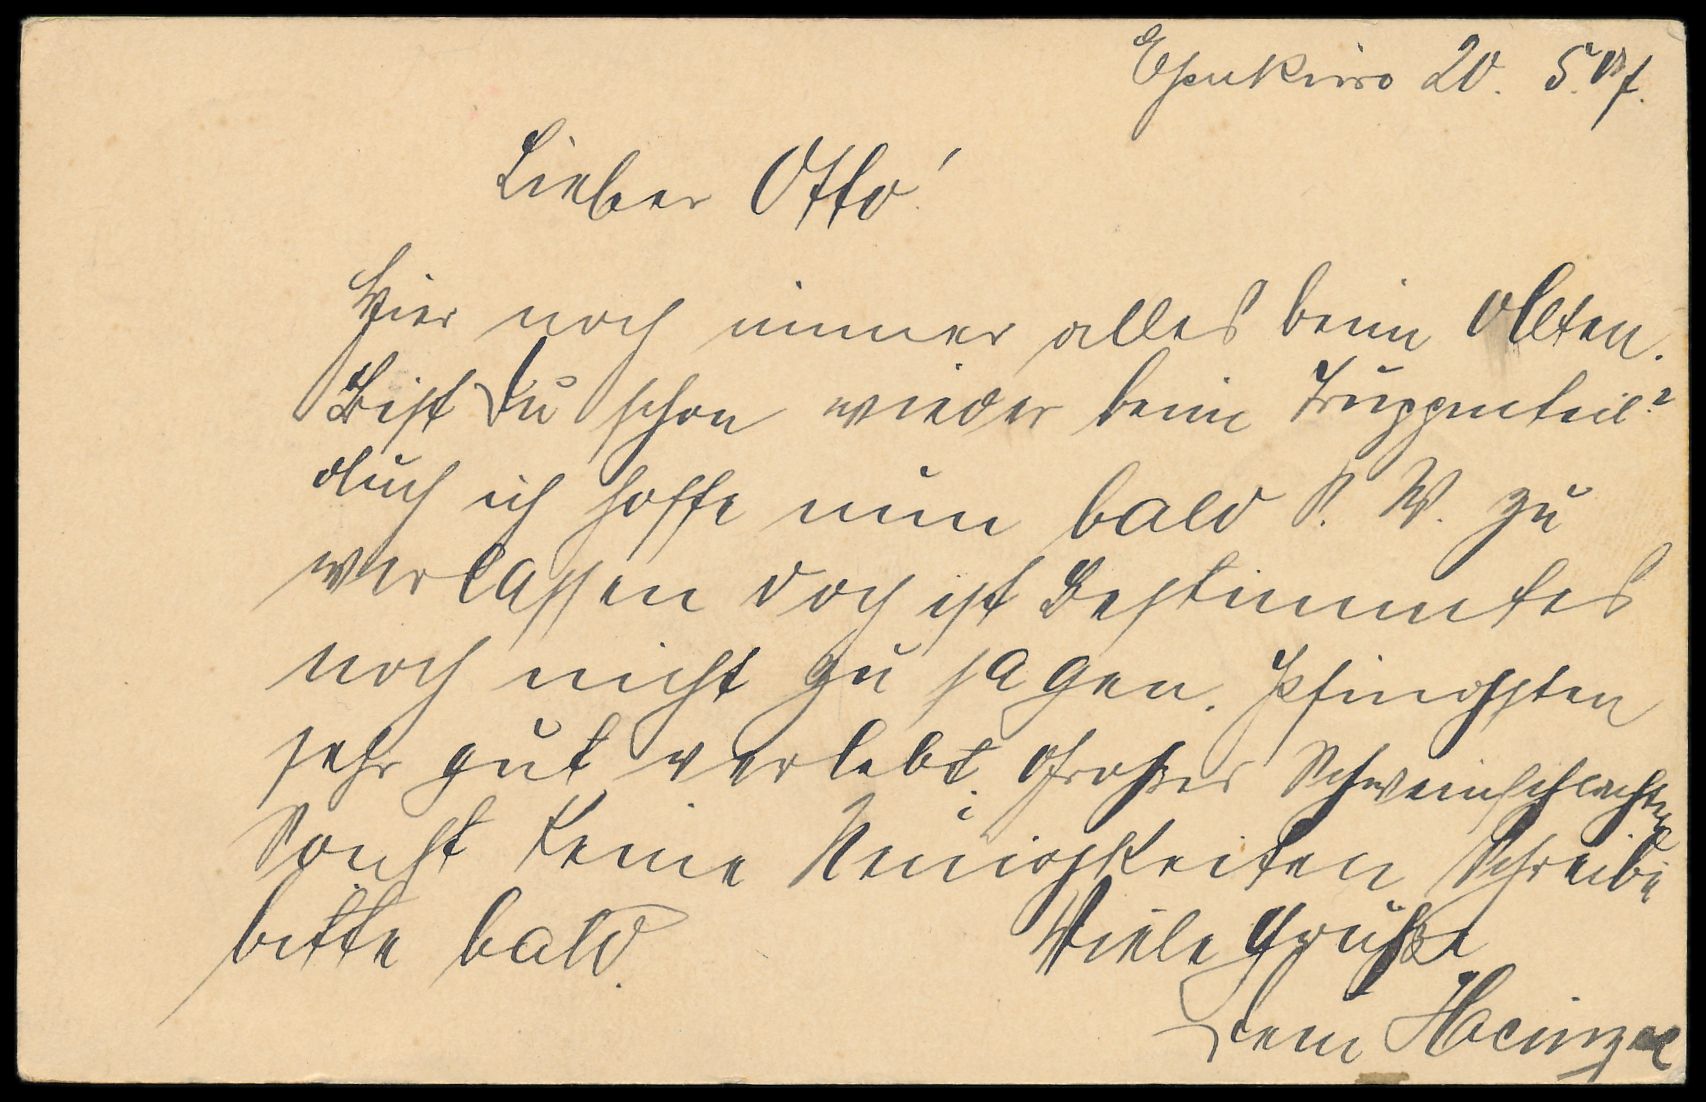 Epukiro 20. 5. 07.
Lieber Otto!
Hier noch immer alles beim Alten.
Bist Du schon wieder beim Truppenteil?
Auch ich hoffe nun bald S. W. zu
verlassen doch ist Bestimmtes
noch nicht zu sagen. Pfingsten
sehr gut verlebt. Großes Schweinschlachten
Sonst keine Neuigkeiten Schreibe
bitte bald. Viele Grüße
Dein